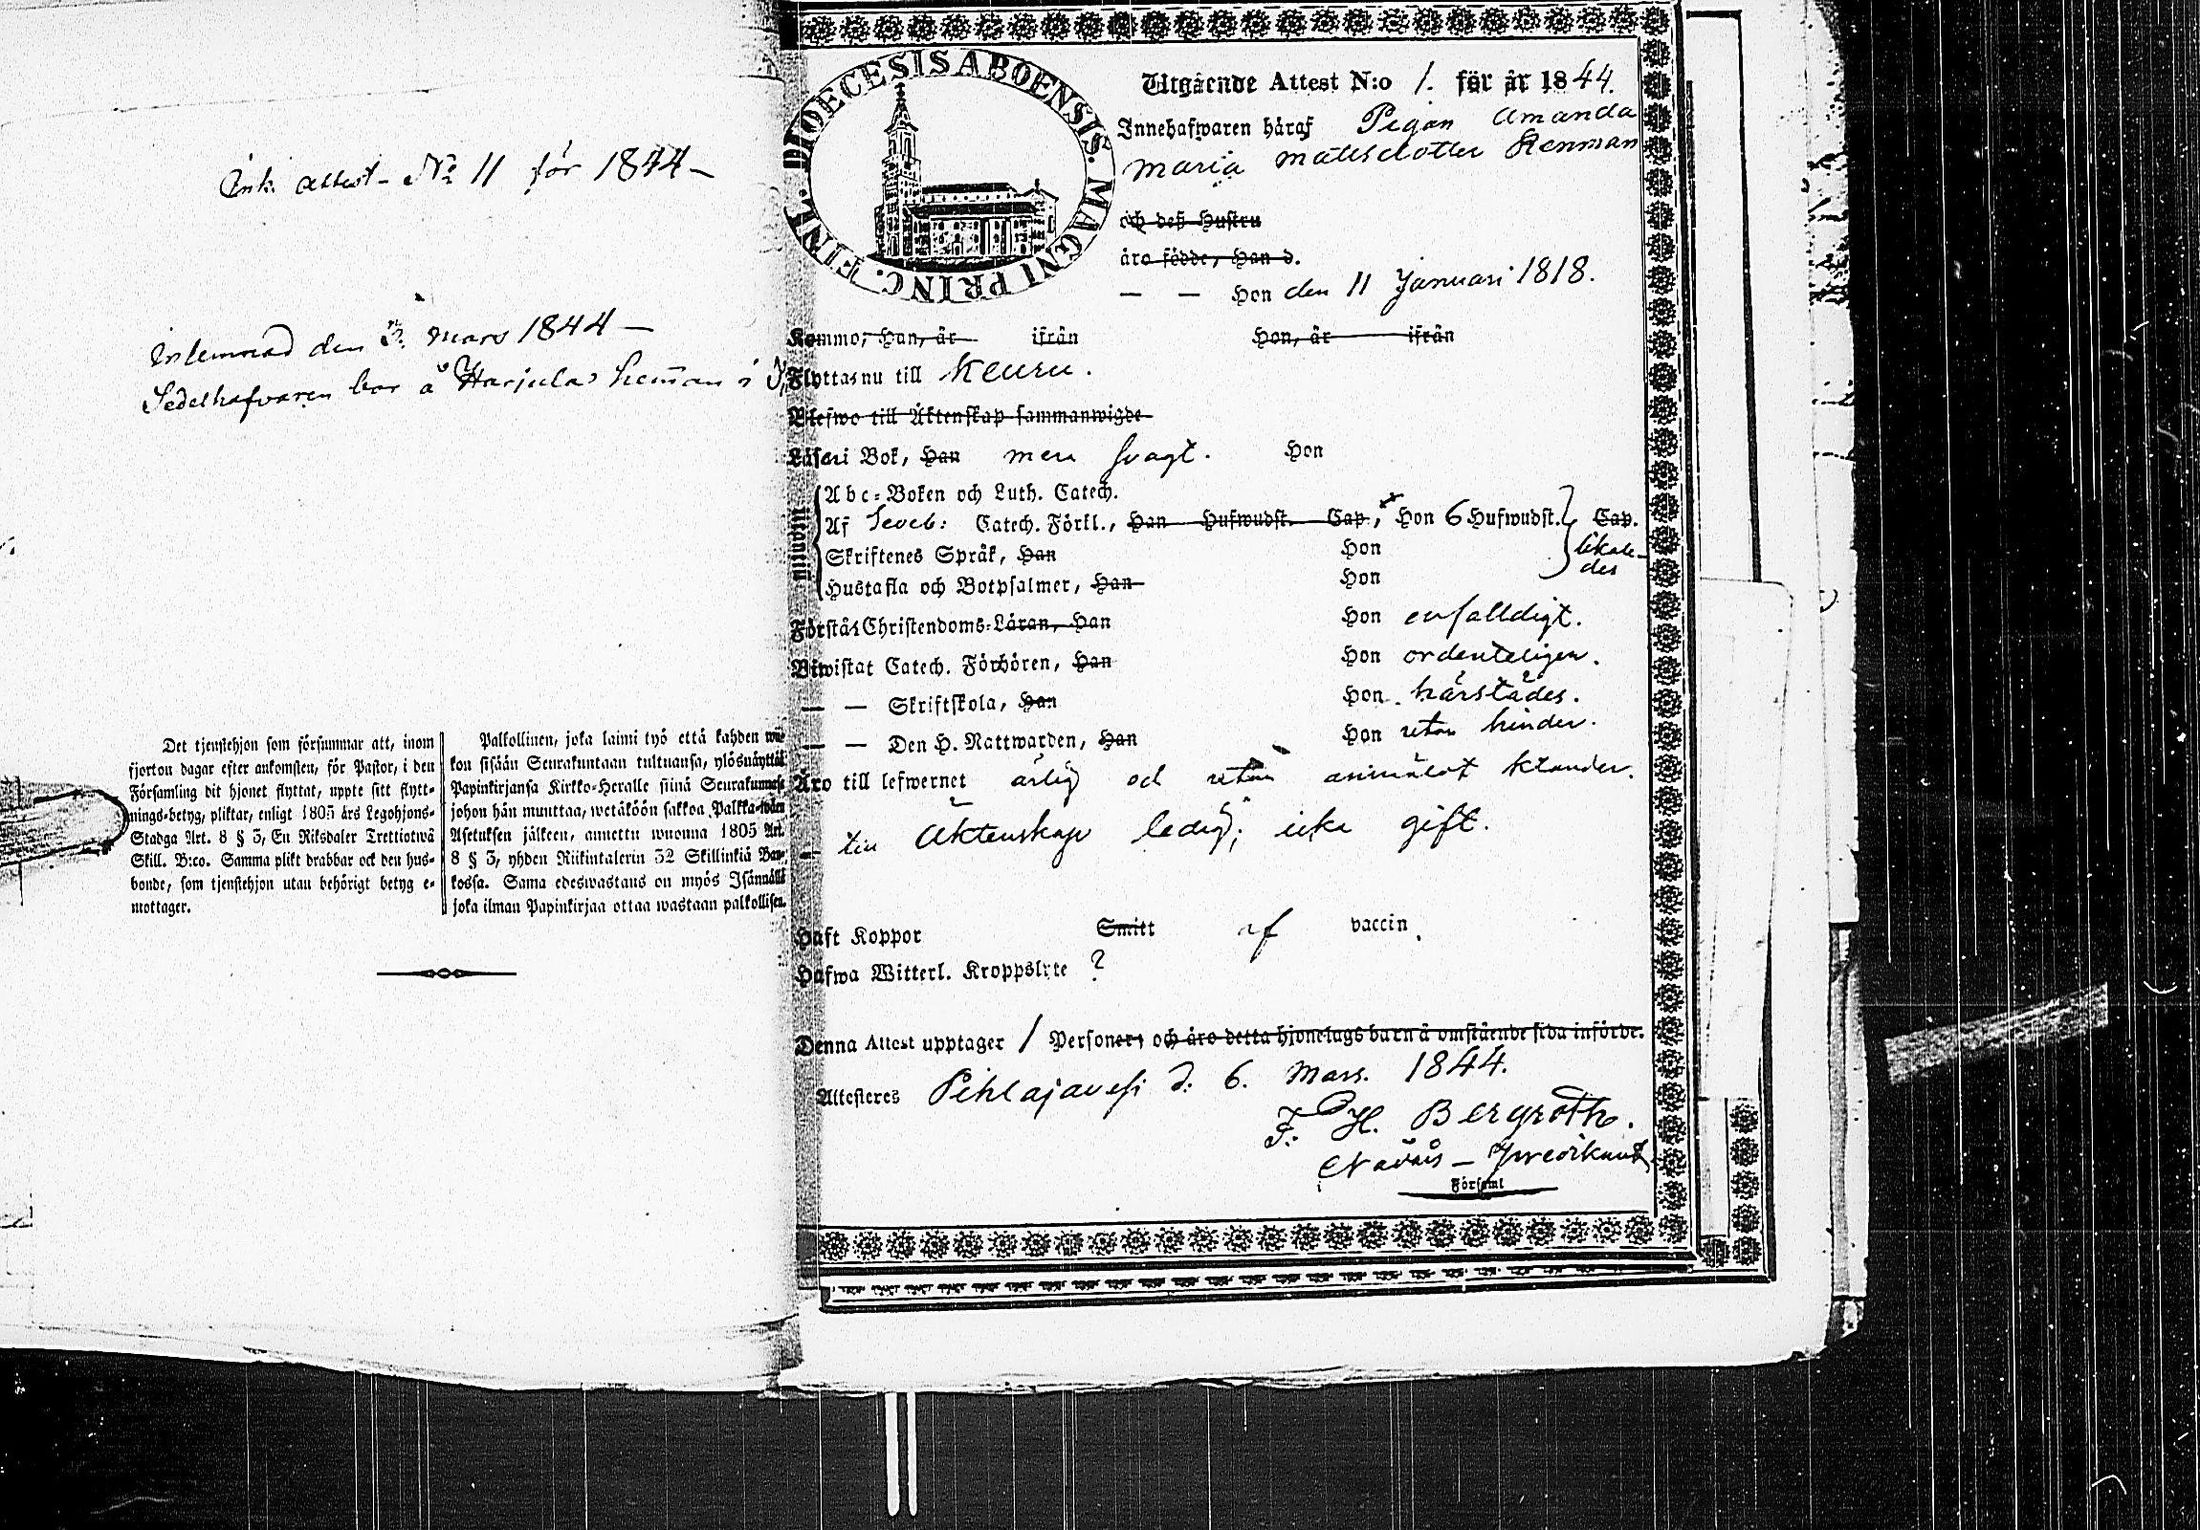 Ink. attest - No 11 för 1844 -
Inlemnad den 3. mars 1844 -
Sedelhafvaren bor å Harjulas heman i
Det tjenstehjon som försummar att, inom
fjorton dagar efter ankomsten, för Pastor, i den
Församling dit hjonet flyttat, uppte sitt flytt-
nings-betyg, pliktar, enligt 1805 års Legohjons-
Stadga Art. 8 § 3, En Riksdaler Trettiotwå
Skill. B:co. Samma plikt drabbar ock den hus-
bonde, som tjenstehjon utan behörigt betyg e-
mottager.
Palkollinen, joka laimi lyö että kahden wii-
kon sisään Seurakuntaan tultuansa, ylösnäyttää
Papinkirjansa Kirkko-Herralle siinä Seurakunnasa
johon hän muuttaa, wetäköön sakkoa Palkka-wäen
Asetuksen jälkeen, annettu wuonna 1805 Art.
8 § 3, yhden Riikintalerin 32 Skillinkiä Ban-
kossa. Sama edeswastaus on myös Isännällä
joka ilman Papinkirjaa ottaa wastaan palkollisen.
DIOECESIS ABOENSIS. MAGNI PRINC. FINL.
Utgående Attest N:o 1. för år 1844.
Innehafwaren häraf Pigan Amanda
Maria Mattsdotter Renman
och deß Hustru
äro födde, Han d.
— — Hon den 11 Januari 1818.
Kommo, Han, är ifrån Hon, är ifrån
Flyttas nu till Keuru.
Blefwo till Äktenskap sammanwigde
Läser i Bok, Han men svagt. Hon
utantill
Abc-Boken och Luth. Catech.
Af Sveb: Catech. Förkl., Han Hufwudst. Cap, Hon 6 Hufwudst. Cap.
Skriftenes Språk, Han Hon likale-
Hustafla och Botpsalmer, Han Hon des
Förstå Christendoms-Läran, Han Hon enfalldigt.
Biwistat Catech. Förhören, Han Hon ordenteligen.
— — Skriftskola, Han Hon härstädes.
— — Den H. Nattwarden, Han Hon utan hinder.
Äro till lefwernet ärlig och utan anmäldt klander.
— till Äktenskap ledig; icke gift.
Haft Koppor Smitt af vaccin.
Hafwa Witterl. Kroppslyte ?
Denna Attest upptager 1 Personer, och äro detta hjonelags barn å omstående sida införde.
Attesteres Pihlajavesi d: 6. Mars. 1844.
F: H. Bergroth.
Nådårs - Predikant
i Församl